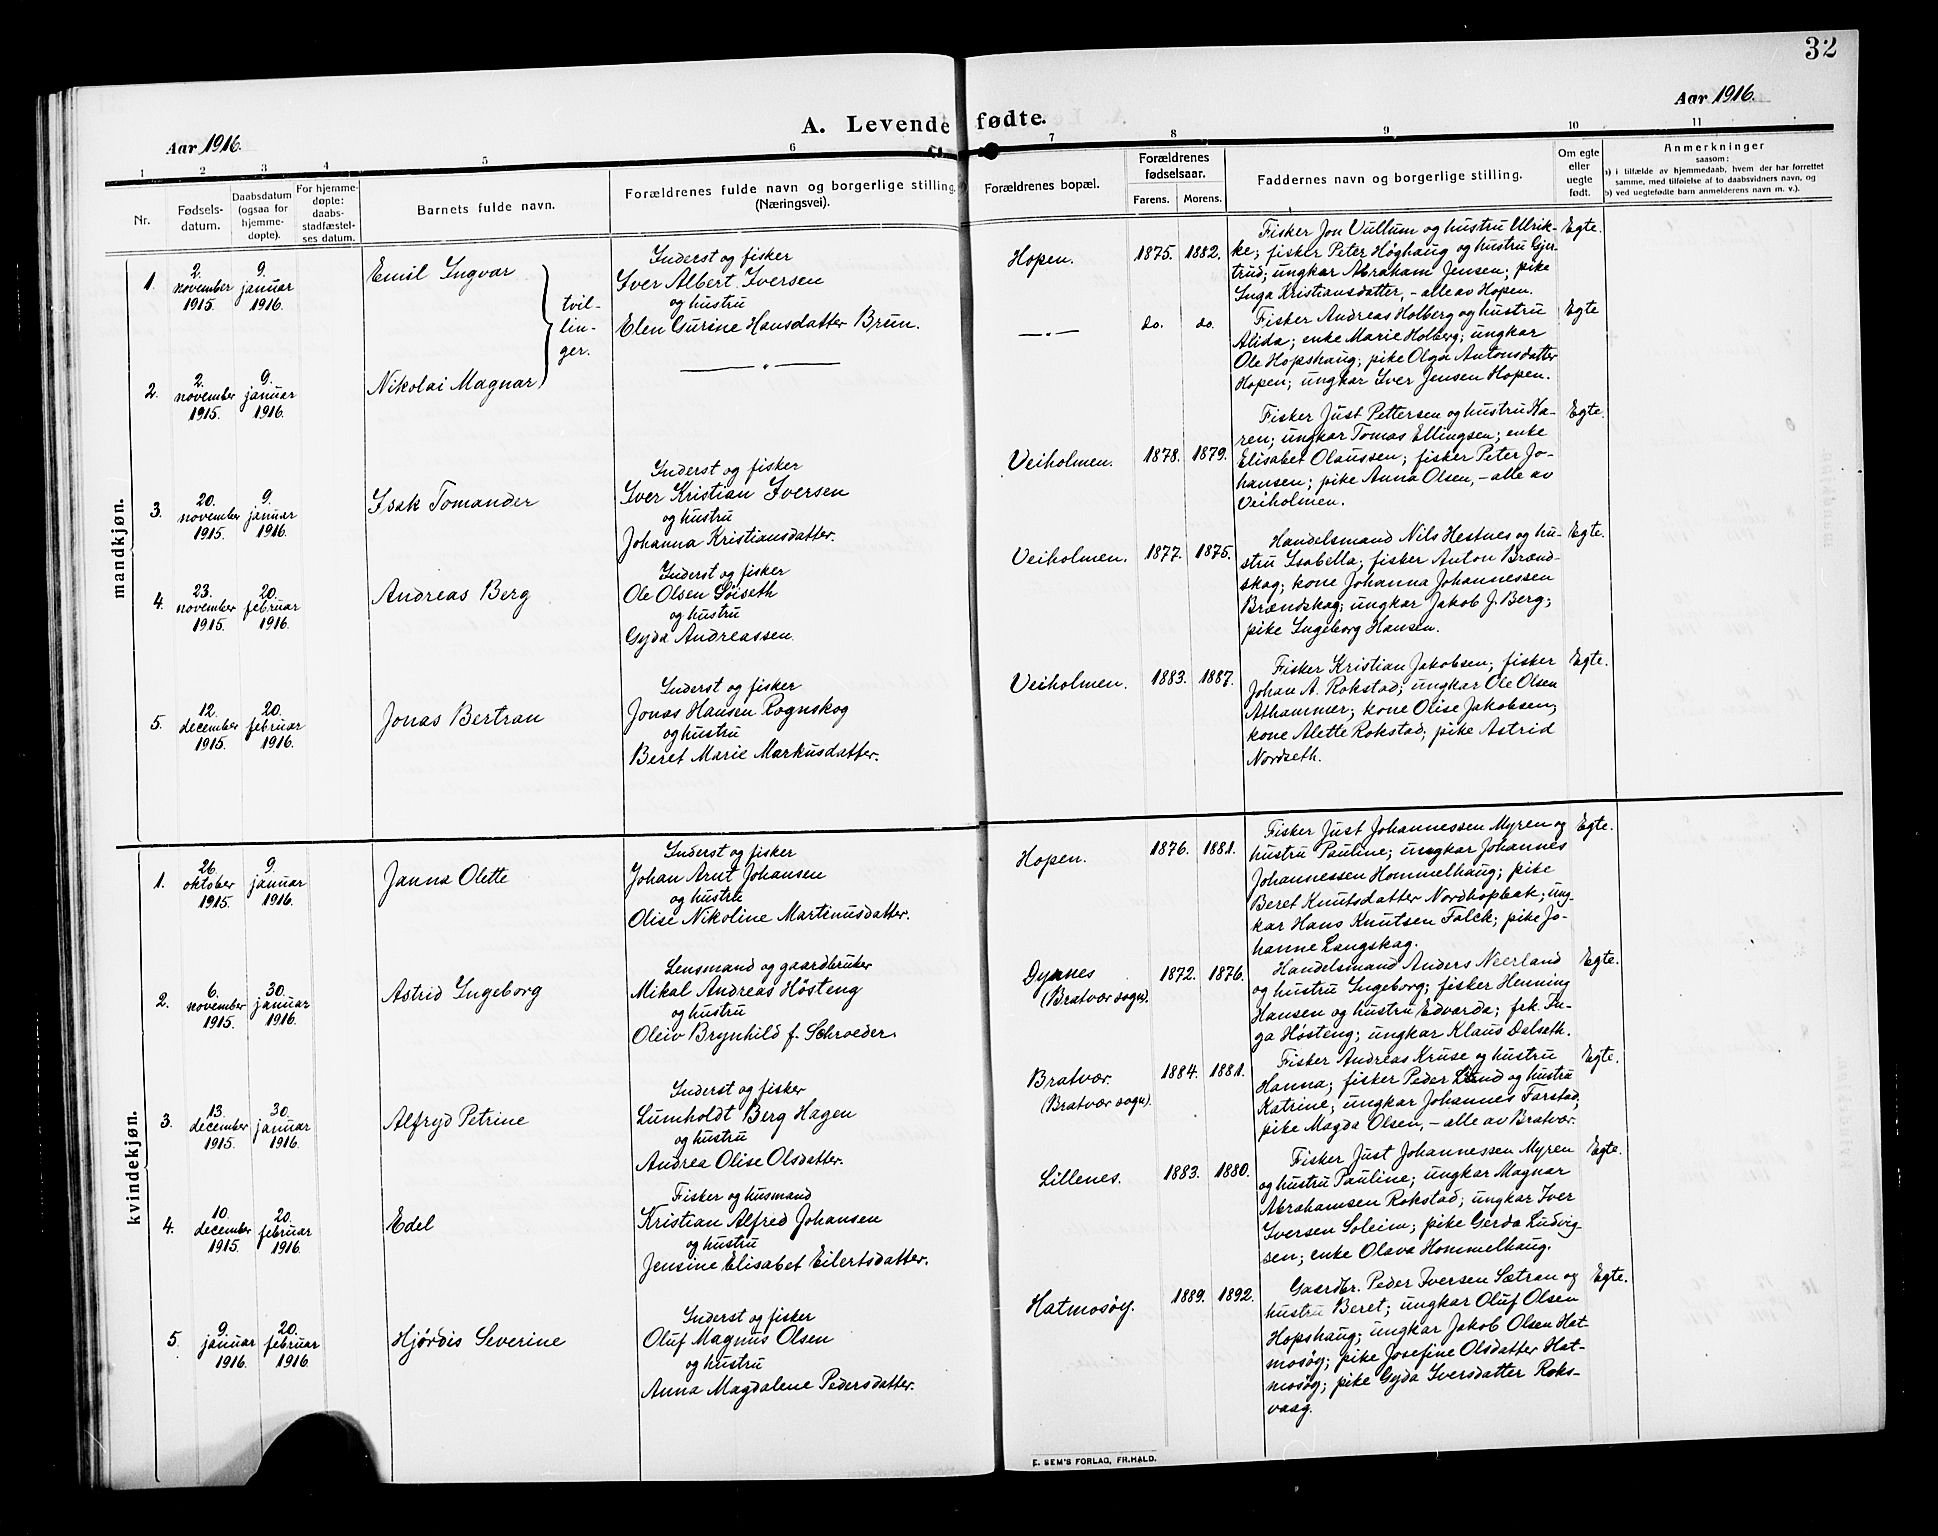 32
Aar 1916.
Aar 1916.
A. Levende fødte.
1 2 3 4 5 6 7 8 9 10 11
Nr.
Fødsels-
datum.
Daabsdatum
(ogsaa for
hjemme-
døpte).
For hjemme-
døpte:
daabs-
stadfæstel-
ses datum.
Barnets fulde navn.
Forældrenes fulde navn og borgerlige stilling.
(Næringsvei).
Forældrenes bopæl.
Forældrenes
fødselsaar.
Farens. Morens.
Faddernes navn og borgerlige stilling.
Om egte
eller
uegte
født.
Anmerkninger
saasom:
a) i tilfælde av hjemmedaab, hvem der har forrettet
samme, med tilføielse af to daabsvidners navn, og
b) ved uegtefødte barn anmelderens navn m. v.).
mandkjøn.
1.
2.
november
1915.
9.
januar
1916.
Emil Ingvar
tvil-
lin-
ger.
Inderst og fisker
Iver Albert Iversen
og hustru
Elen Gurine Hansdatter Brun.
Hopen.
1875. 1882.
Fisker Jon Vullum og hustru Ulrik-
ke; fisker Peter Høghaug og hustru Gjer-
trud; ungkar Abraham Jensen; pike
Inga Kristiansdatter, - alle av Hopen.
Egte.
2.
2.
november
1915.
9.
januar
1916.
Nikolai Magnar
— „ —
— „ —
do. do.
Fisker Andreas Holberg og hustru
Alida; enke Marie Holberg; ungkar
Ole Hopshaug; pike Olga Antonsdatter
Hopen; ungkar Iver Jensen Hopen.
Egte
3.
20.
november
1915.
9.
januar
1916.
Isak Tomander
Inderst og fisker
Iver Kristian Iversen
og hustru
Johanna Kristiansdatter.
Veiholmen.
1878. 1879.
Fisker Just Pettersen og hustru Ka-
ren; ungkar Tomas Ellingsen; enke
Elisabet Olaussen; fisker Peter Jo-
hansen; pike Anna Olsen, - alle av
Veiholmen.
Egte.
4.
23.
november
1915.
20.
februar
1916.
Andreas Berg
Inderst og fisker
Ole Olsen Søiseth
og hustru
Gyda Andreassen.
Veiholmen.
1877. 1875.
Handelsmand Nils Hestnes og hu-
stru Isabella; fisker Anton Brænd-
skag; kone Johanna Johannessen
Brændskag; ungkar Jakob J. Berg;
pike Ingeborg Hansen.
Egte.
5.
12.
december
1915.
20.
februar
1916.
Jonas Bertran
Inderst og fisker
Jonas Hansen Rognskog
og hustru
Beret Marie Markusdatter.
Veiholmen.
1883. 1887.
Fisker Kristian Jakobsen; fisker
Johan A. Rokstad; ungkar Ole Olsen
Athammer; kone Olise Jakobsen;
kone Alette Rokstad; pike Astrid
Nordseth.
Egte.
kvindekjøn.
1.
26.
oktober
1915.
9.
januar
1916.
Janna Olette
Inderst og fisker
Johan Arnt Johansen
og hustru
Olise Nikoline Martinusdatter.
Hopen.
1876. 1881.
Fisker Just Johannessen Myren og
hustru Pauline; ungkar Johannes
Johannessen Hommelhaug; pike
Beret Knutsdatter Nordhopbak; ung-
kar Hans Knutsen Falck; pike Jo-
hanne Langskag.
Egte.
2.
6.
november
1915.
30.
januar
1916.
Astrid Ingeborg
Lensmand og gaardbruker
Mikal Andreas Høsteng
og hustru
Oleiv Brynhild f. Schroeder.
Dyrnes
(Bratvær sogn).
1872. 1876.
Handelsmand Anders Neerland
og hustru Ingeborg; fisker Henning
Hansen og hustru Edvarda; frk. In-
ga Høsteng; ungkar Klaus Dalseth.
Egte.
3.
13.
december
1915.
30.
januar
1916.
Alfryd Petrine
Inderst og fisker
Lumholdt Berg Hagen
og hustru
Andrea Olise Olsdatter.
Bratvær.
(Bratvær sogn).
1884. 1881.
Fisker Andreas Kruse og hustru
Hanna; fisker Peder Lund og hustru
Katrine; ungkar Johannes Farstad;
pike Magda Olsen, - alle av Bratvær.
Egte.
4.
10.
december
1915.
20.
februar
1916.
Edel
Fisker og husmand
Kristian Alfred Johansen
og hustru
Jensine Elisabet Eilertsdatter.
Lillenes.
1883. 1880.
Fisker Just Johannessen Myren
og hustru Pauline; ungkar Magnar
Abrahamsen Rokstad; ungkar Iver
Iversen Soleim; pike Gerda Ludvig-
sen; enke Olava Hommelhaug.
Egte.
5.
9.
januar
1916.
20.
februar
1916.
Hjørdis Severine
Inderst og fisker
Oluf Magnus Olsen
og hustru
Anna Magdalene Pedersdatter.
Hatmosøy.
1889. 1892.
Gaardbr. Peder Iversen Sætran og
hustru Beret; ungkar Oluf Olsen
Hopshaug; ungkar Jakob Olsen Hat-
mosøy; pike Josefine Olsdatter Hat-
mosøy; pike Gyda Iversdatter Roks-
vaag.
Egte.
E. SEM'S FORLAG, FR.HALD.